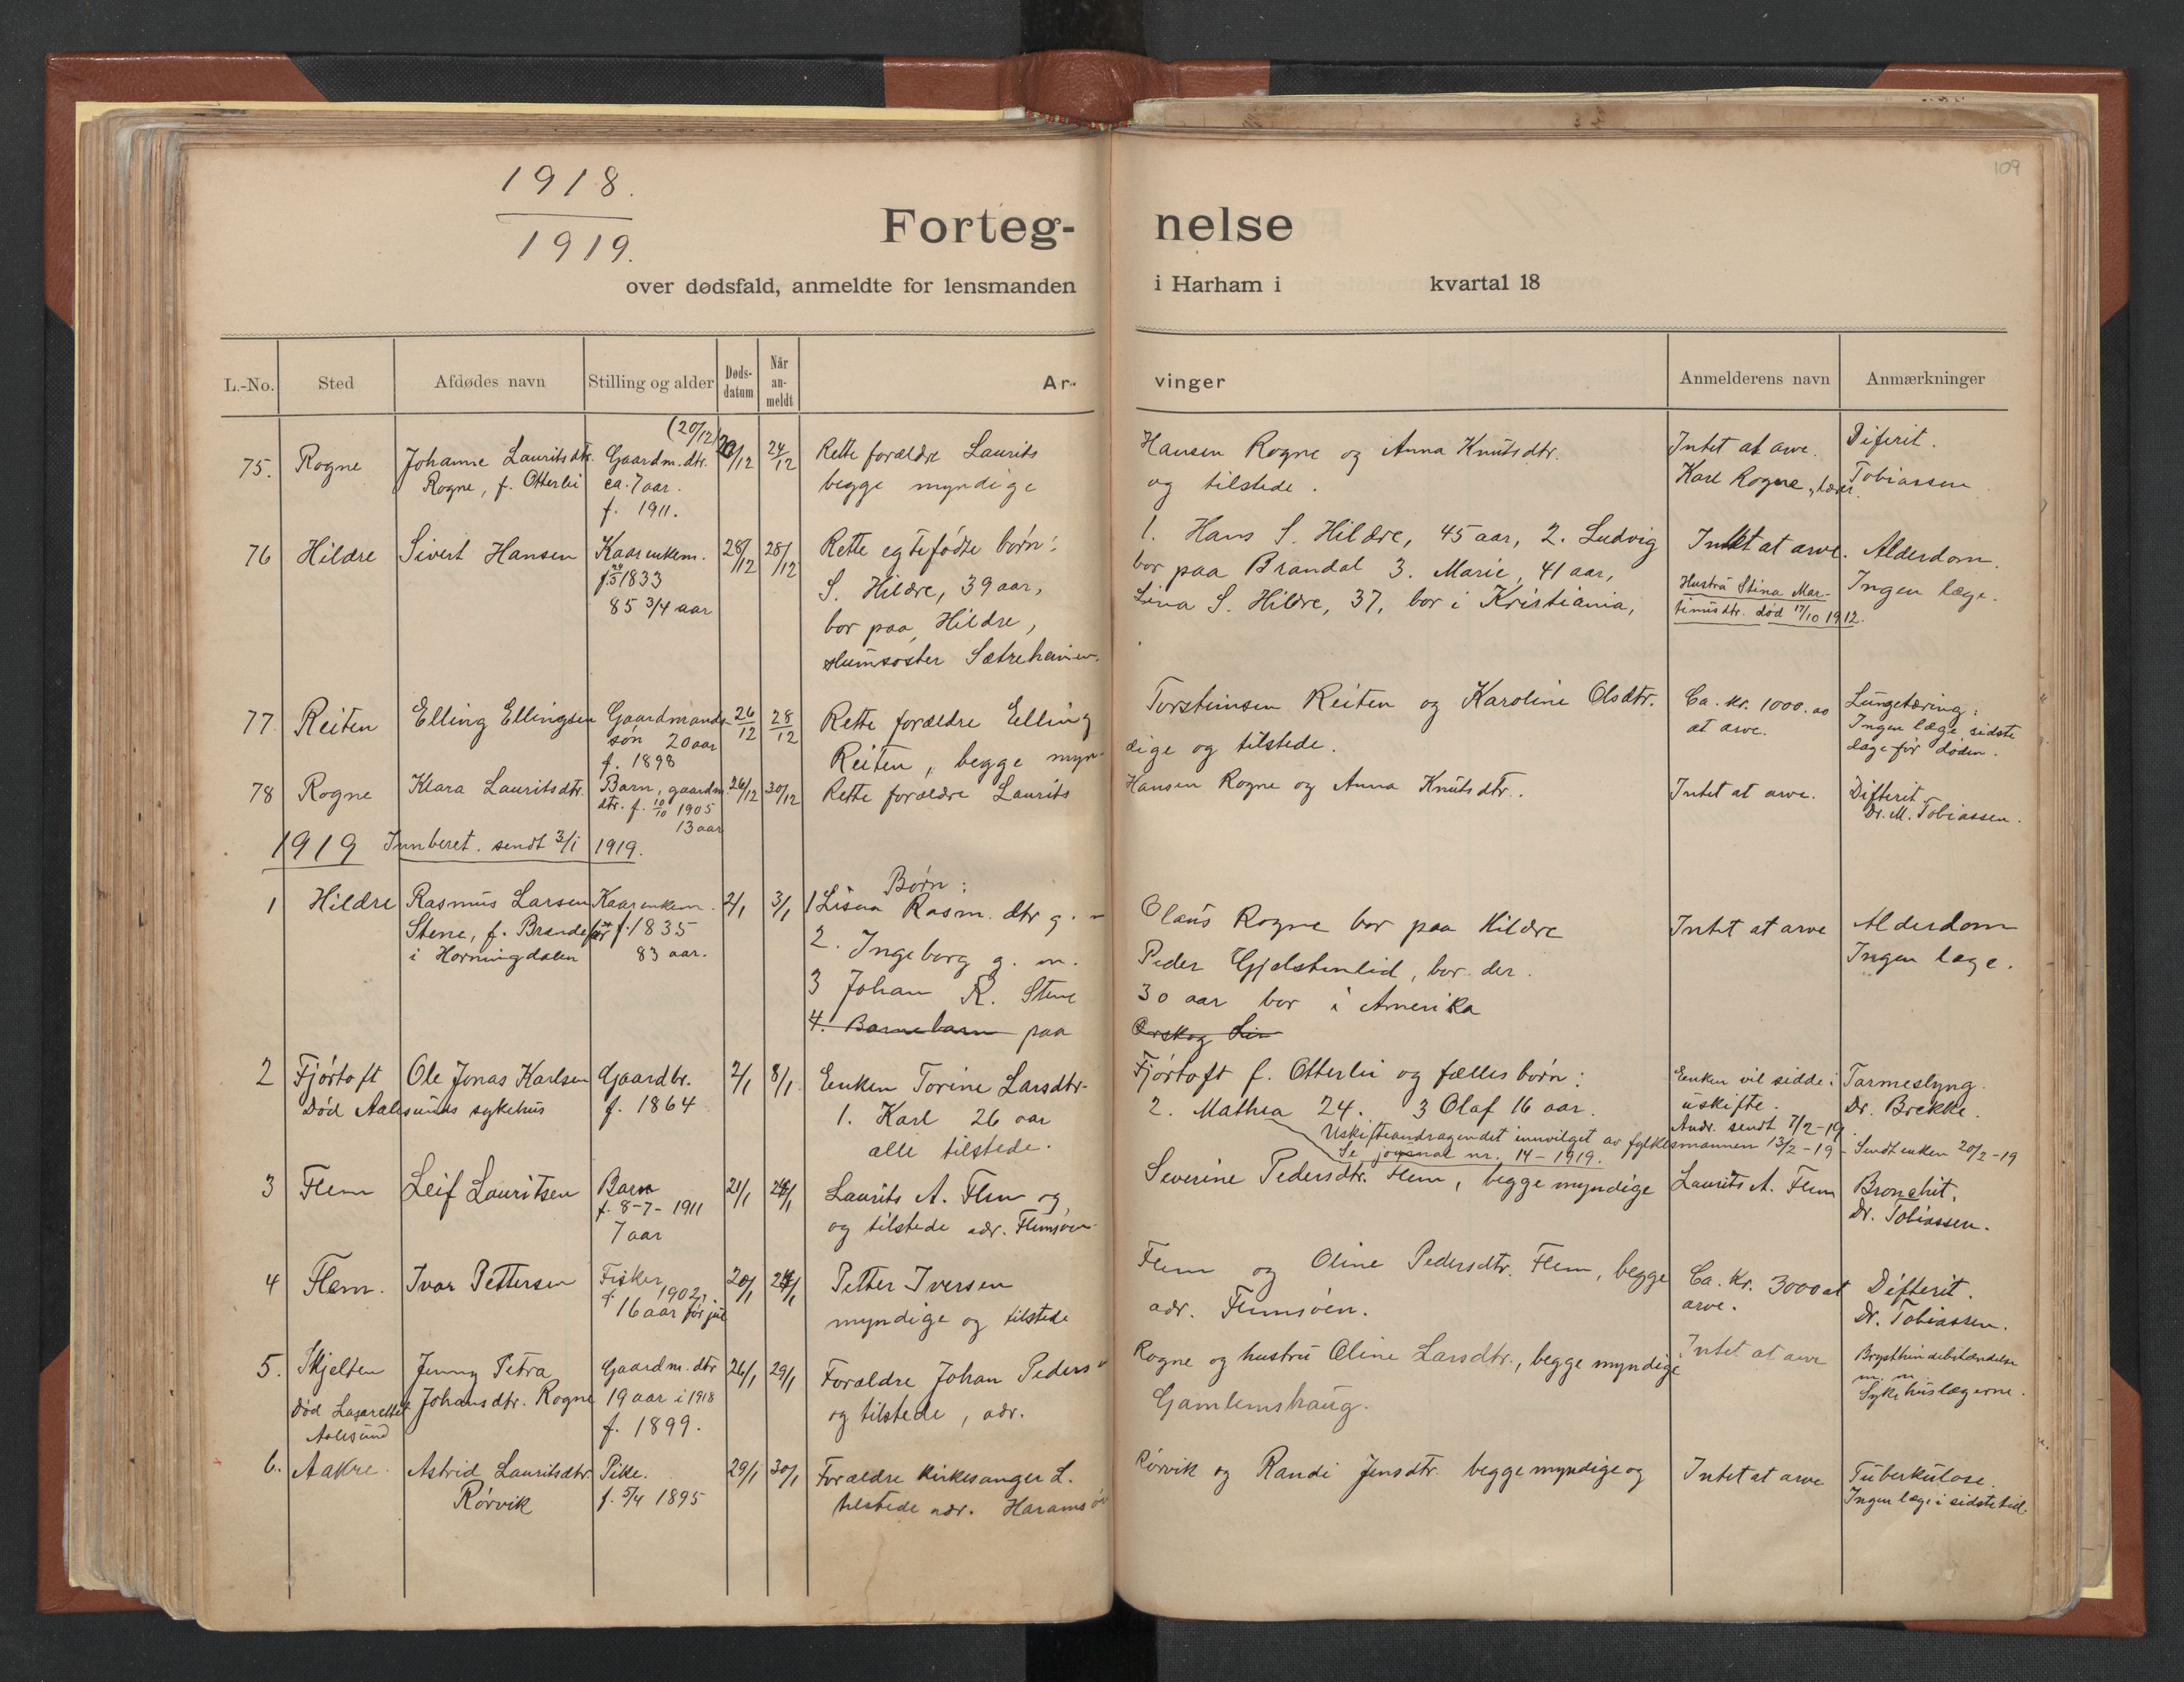 109
1918.
1919.
Forteg-nelse
over dødsfald, anmeldte for lensmanden i Harham i kvartal 18
L.-No. Sted Afdødes navn Stilling og alder Døds-datum Når an-meldt Ar-vinger Anmelderens navn Anmærkninger
(20/12)
75. Rogne Johanne Lauritsdtr. Gaardm. dtr. /12 24/12 Rette forældre Laurits Hansen Rogne og Anna Knutsdtr. Intet at arve. Difterit.
Rogne, f. Otterlei ca. 7 aar. begge myndige og tilstede. Karl Rogne, lærer. Tobiassen
f. 1911.
76 Hildre Sivert Hansen Kaarenkem. 28/12 28/12 Rette egtefødte børn: 1. Hans S. Hildre, 45 aar, 2. Ludvig Intet at arve. Alderdom.
f. /5 1833 S. Hildre, 39 aar, bor paa Brandal 3. Marie, 41 aar, Hustru Stina Mar- Ingen læge.
85 3/4 aar bor paa Hildre, Lina S. Hildre, 37, bor i Kristiania, tinusdtr. død 17/10 1912.
slumsøster Sætrehavnen.
77. Reiten Elling Ellingsen Gaardmands- 26/12 28/12 Rette forældre Elling Torsteinsen Reiten og Karoline Olsdtr. Ca. kr. 1000.00 Lungetæring:
søn 20 aar Reiten, begge myn-dige og tilstede. at arve. Ingen læge sidste
f. 1898 dage før døden.
78 Rogne Klara Lauritsdtr. Barn, gaardm. 26/12 30/12 Rette forældre Laurits Hansen Rogne og Anna Knutsdtr. Intet at arve. Difterit.
dtr. f. 10/10 1905 Dr. M. Tobiassen.
13 aar
1919 Innberet. sendt 3/1 1919.
Børn:
1 Hildre Rasmus Larsen Kaarenkem. 2/1 3/1 1 Lisna Rasm. dtr g. m Olaus Rogne bor paa Hildre Intet at arve Alderdom
Stene, f. f. 1835 2. Ingeborg g. m. Peder Gjelstenlid, bor der. Ingen læge.
i Horningdalen 83 aar. 3 Johan R. Stene 30 aar bor i Amerika
4. Barnebarn paa Ørskog
2 Fjørtoft Ole Jonas Karlsen Gaardbr. 2/1 8/1 Enken Torine Larsdtr. Fjørtoft f. Otterlei og fælles børn: Enken vil sidde i Tarmeslyng.
Død Aalesunds sykehus f. 1864 1. Karl 26 aar 2. Mathea 24. 3 Olaf 16 aar. uskifte. Dr. Brekke.
alle tilstede. Andr. sendt 7/2-19
Uskifteandragendet innvilget av fylkesmannen 13/2-19 - Sendt enken 20/2-19
Se journal nr. 14-1919.
3 Flem Leif Lauritsen Barn 21/1 24/1 Laurits A. Flem og Severine Pedersdtr. Flem, begge myndige Laurits A. Flem Bronchit.
f. 8-7-1911 og tilstede adr. Flemsøen. Dr. Tobiassen.
7 aar
4 Flem. Ivar Pettersen Fisker 20/1 24/1 Petter Iversen Flem og Oline Pedersdtr. Flem, begge Ca. kr. 3000 at Difterit.
f. 1902. myndige og tilstede adr. Flemsøen. arve. Dr. Tobiassen.
16 aar før jul
5. Skjelten Jenny Petra Gaardm. dtr 26/1 29/1 Forældre Johan Peders Rogne og hustru Oline Larsdtr., begge myndige Intet at arve Brysthindebetændelse
Død Lasarettet Johansdtr. Rogne 19 aar i 1918 og tilstede, adr. Gamlemshaug. m. m.
Aalesund f. 1899. Sykehuslægerne.
6. Aakre. Astrid Lauritsdtr. Pike. 29/1 30/1 Forældre Kirkesanger L. Rørvik og Randi Jensdtr. begge myndige og Intet at arve Tuberkulose.
Rørvik f. 5/4 1895 tilstede adr. Haramsø Ingen læge i sidste tid.